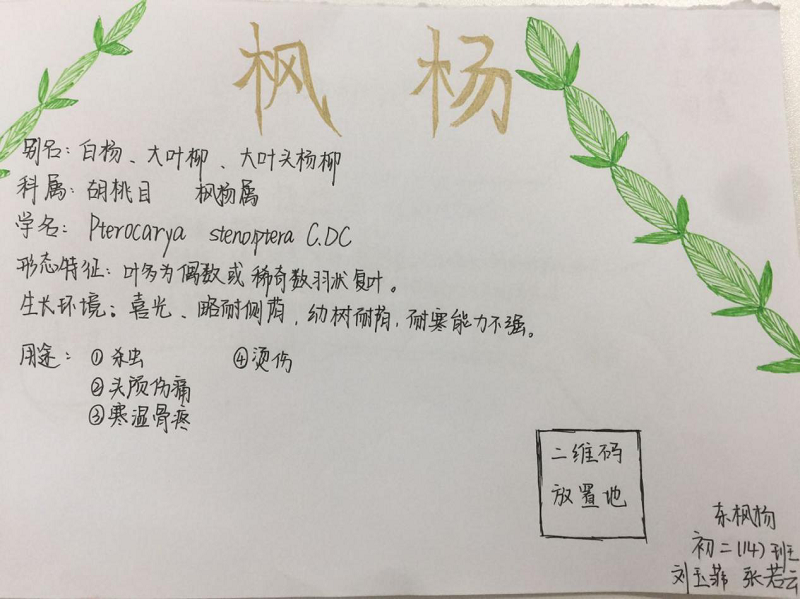 枫 杨
别名：白杨、大叶柳、大叶头杨柳
科属：胡桃目 枫杨属
学名：Pterocarya stenoptera C.DC
形态特征：叶多为偶数或稀奇数羽状复叶。
生长环境：喜光、略耐侧荫，幼树耐荫，耐寒能力不强。
用途：①杀虫 ④烫伤
②头颅伤痛
③寒湿骨疼
二维码
放置地
东枫杨
初二(14)班
刘玉菲 张若云